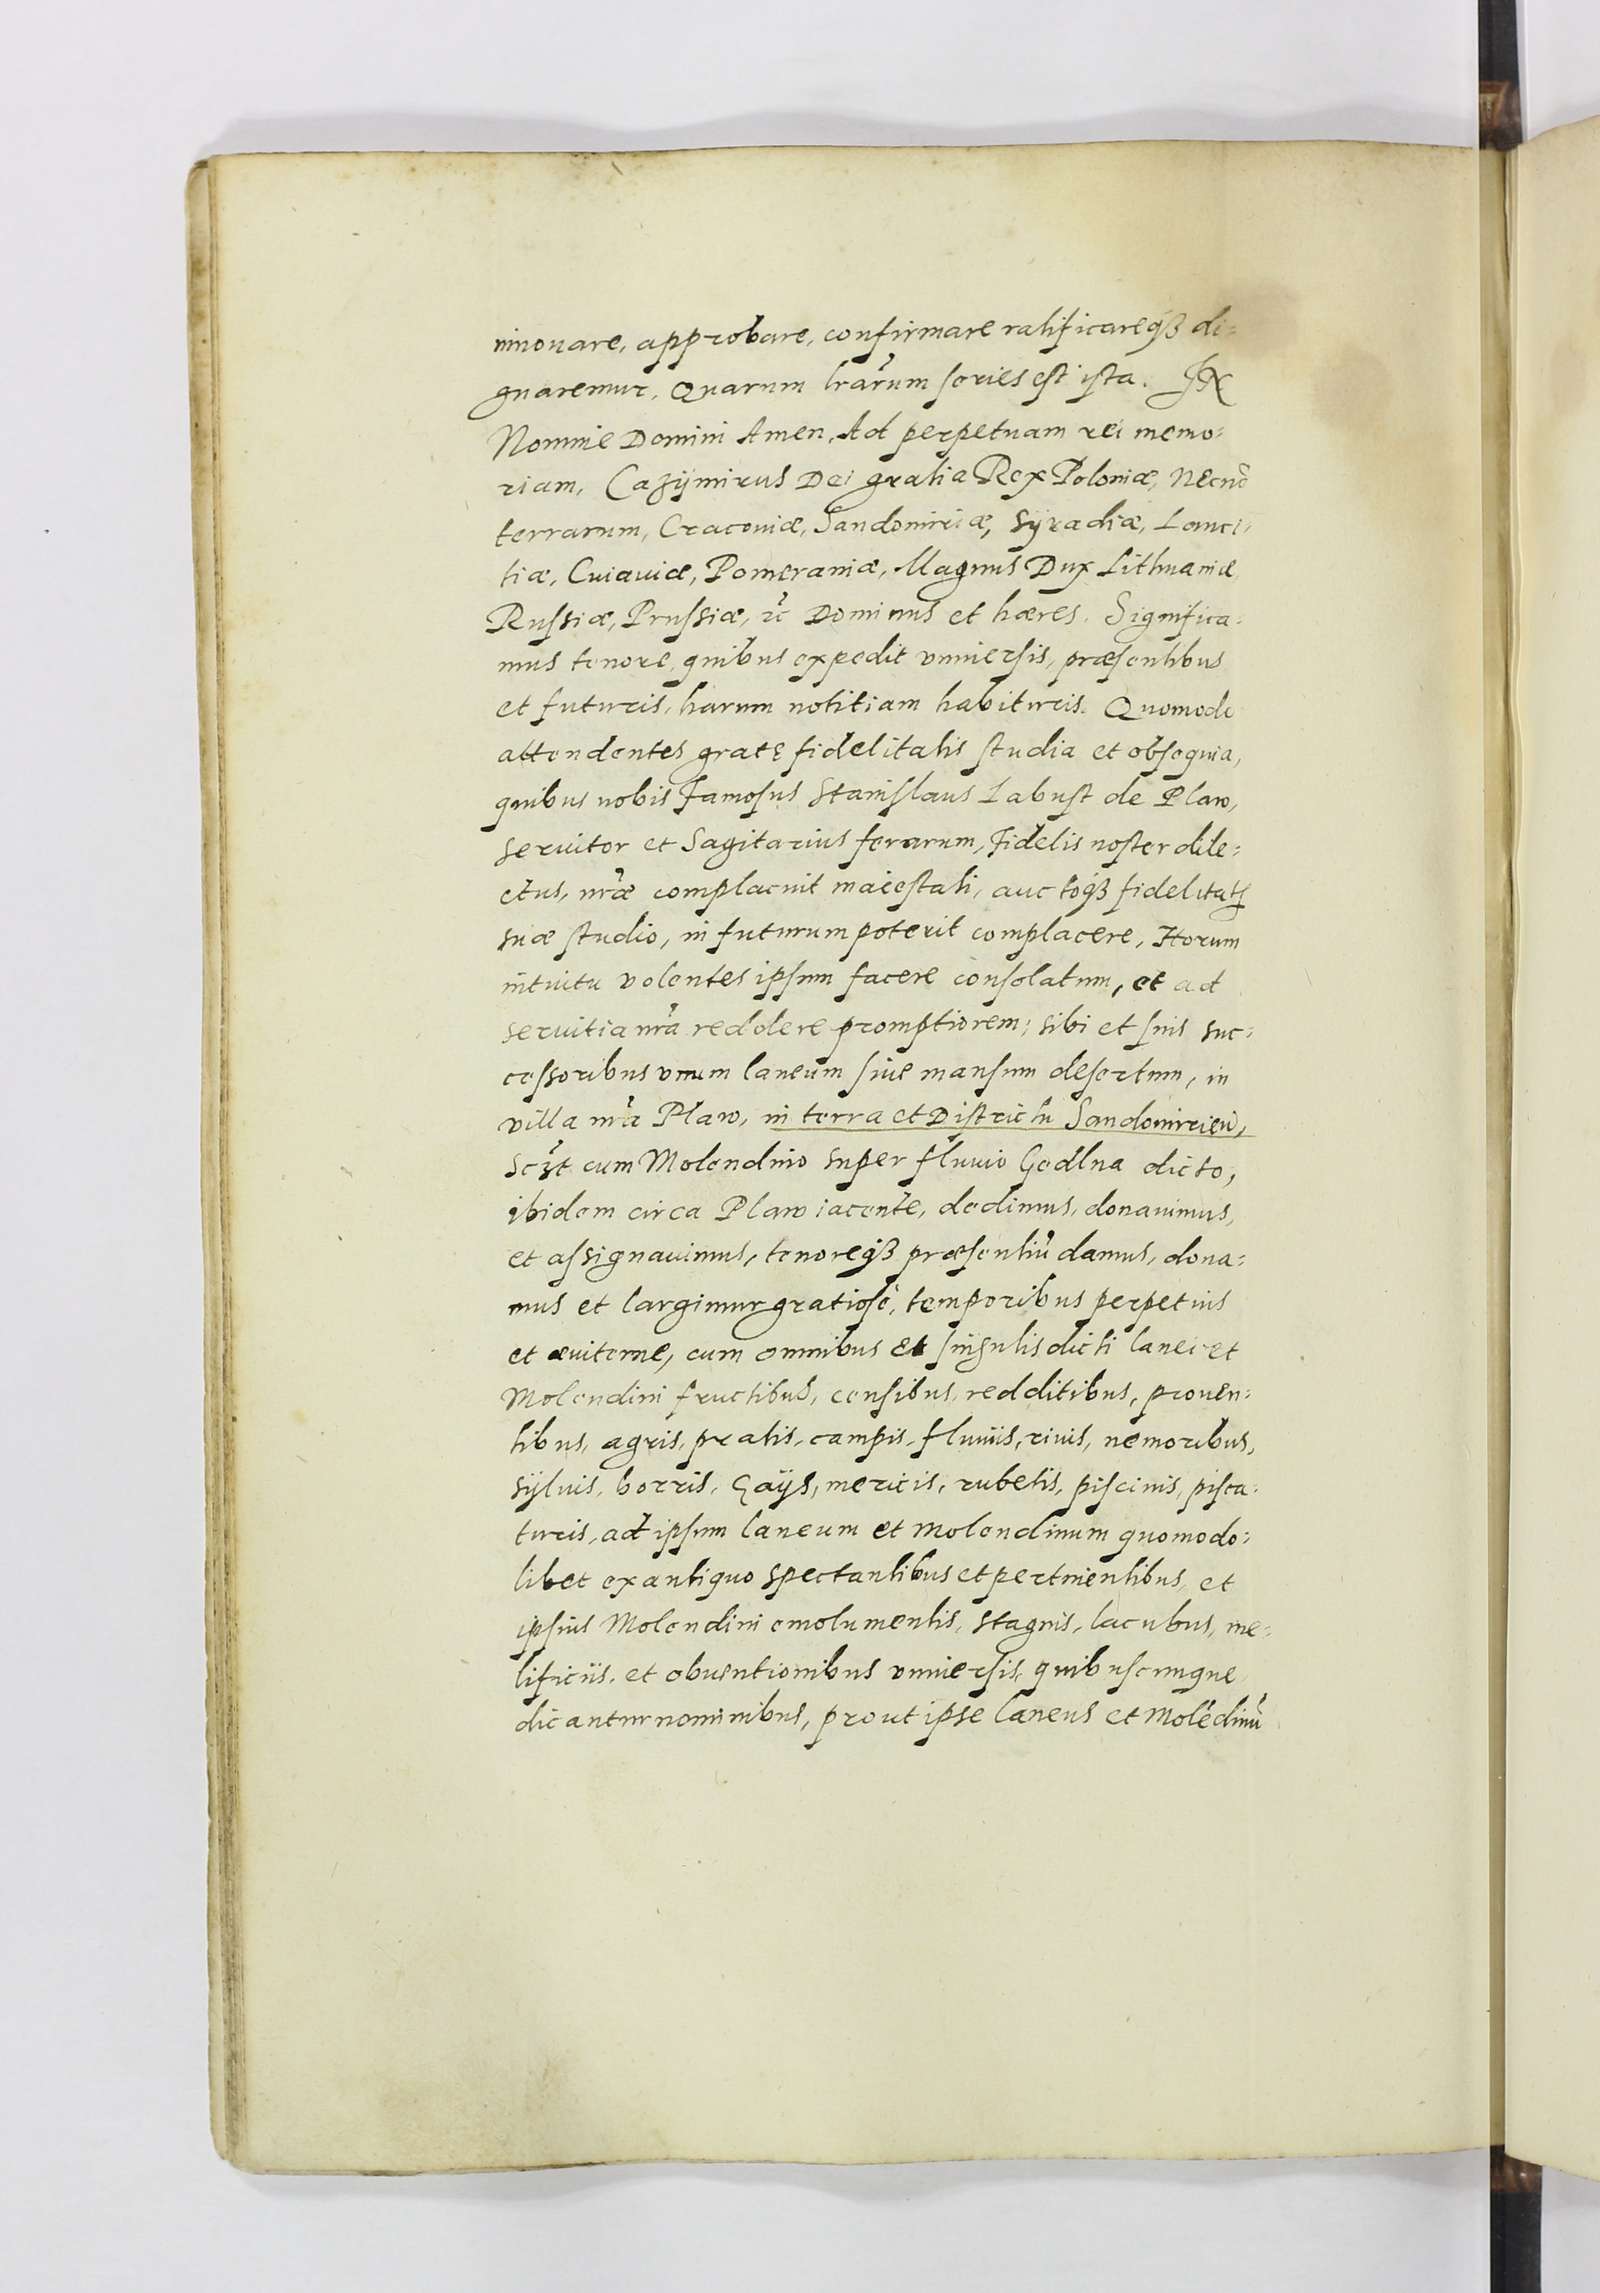 innouare, approbare, confirmare ratificareq3 di-
gnaremur. Quarum lrarum series est ista. In
Nomine Domini Amen. Ad perpetuam rei memo-
riam. Cazÿmirus Dei gratia Rex Poloniæ, necnõ
terrarum, Cracouiæ, Sandomiriæ, Sÿradiæ, Lanci-
tiæ, Cuiauiæ, Pomeraniæ, Magnus Dux Lithuaniæ,
Russiæ, Prussiæ, rc Dominus et hæres. Significa-
mus tenore, quibus expedit vniuersis, præsentibus
et futuris, harum notitiam habituris. Quomodo
attendentes gratę fidelitatis studia et obsequia,
quibus nobis Famosus Stanislaus Labust de Plaw,
seruitor et Sagitarius ferarum, Fidelis noster dile-
ctus, nræ complacuit maiestati, auctoq3 fidelitatis
suæ studio, in futurum poterit complacere, Horum
intuitu volentes ipsum facere consolatum, et ad
seruitia nra reddere promptiorem, sibi et suis suc-
cessoribus vnum laneum siue mansum desertum, in
villa nra Plaw, in terra et Districtu Sandomirien,
sczt cum Molendino super fluuio Gedlna dicto,
ibidem circa Plaw iacente, dedimus, donauimus,
et assignauimus, tenoreq3 præsentiũ damus, dona-
mus et largimur gratiosè, temporibus perpetuis
et æuiterne, cum omnibus et singulis dicti lanei et
Molendini fructibus, censibus, redditibus, prouen-
tibus, agris, pratis, campis, fluuiis, riuis, nemoribus,
sÿluis, borris, gaÿs, mericis, rubetis, piscinis, pisca-
turis, ad ipsum laneum et Molendinum quomodo-
libet ex antiquo spectantibus et pertinentibus, et
ipsius Molendini emolumentis, stagnis, lacubus, me-
lificiis, et obuentionibus vniuersis, quibuscunque
dicantur nominibus, prout ipse laneus et Molẽdinũ